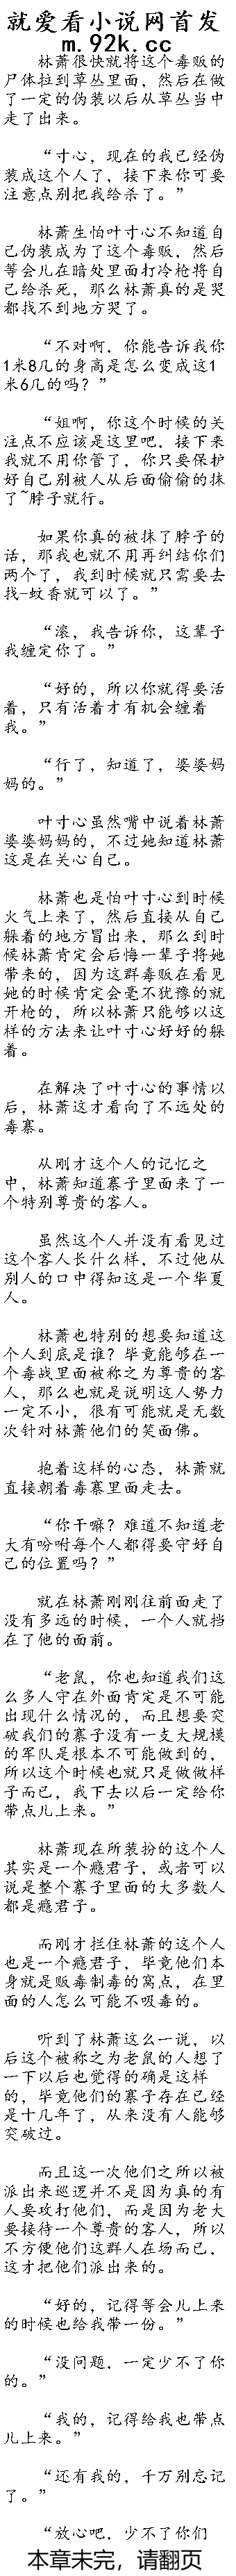 就爱看小说网首发
m.92k.cc
林萧很快就将这个毒贩的
尸体拉到草丛里面，然后在做
了一定的伪装以后从草丛当中
走了出来。
“寸心，现在的我已经伪
装成这个人了，接下来你可要
注意点别把我给杀了。”
林萧生怕叶寸心不知道自
己伪装成为了这个毒贩，然后
等会儿在暗处里面打冷枪将自
己给杀死，那么林萧真的是哭
都找不到地方哭了。
“不对啊，你能告诉我你
1米8几的身高是怎么变成这1
米6几的吗？”
“姐啊，你这个时候的关
注点不应该是这里吧，接下来
我就不用你管了，你只要保护
好自己别被人从后面偷偷的抹
了~脖子就行。
如果你真的被抹了脖子的
话，那我也就不用再纠结你们
两个了，我到时候就只需要去
找-蚊香就可以了。”
“滚，我告诉你，这辈子
我缠定你了。”
“好的，所以你就得要活
着，只有活着才有机会缠着
我。”
“行了，知道了，婆婆妈
妈的。”
叶寸心虽然嘴中说着林萧
婆婆妈妈的，不过她知道林萧
这是在关心自己。
林萧也是怕叶寸心到时候
火气上来了，然后直接从自己
躲着的地方冒出来，那么到时
候林萧肯定会后悔一辈子将她
带来的，因为这群毒贩在看见
她的时候肯定会毫不犹豫的就
开枪的，所以林萧只能够以这
样的方法来让叶寸心好好的躲
着。
在解决了叶寸心的事情以
后，林萧这才看向了不远处的
毒寨。
从刚才这个人的记忆之
中，林萧知道寨子里面来了一
个特别尊贵的客人。
虽然这个人并没有看见过
这个客人长什么样，不过他从
别人的口中得知这是一个华夏
人。
林萧也特别的想要知道这
个人到底是谁？毕竟能够在一
个毒战里面被称之为尊贵的客
人，那么也就是说明这人势力
一定不小，很有可能就是无数
次针对林萧他们的笑面佛。
抱着这样的心态，林萧就
直接朝着毒寨里面走去。
“你干嘛？难道不知道老
大有吩咐每个人都得要守好自
己的位置吗？”
就在林萧刚刚往前面走了
没有多远的时候，一个人就挡
在了他的面前。
“老鼠，你也知道我们这
么多人守在外面肯定是不可能
出现什么情况的，而且想要突
破我们的寨子没有一支大规模
的军队是根本不可能做到的，
所以这个时候也就只是做做样
子而已，我下去以后一定给你
带点儿上来。”
林萧现在所装扮的这个人
其实是一个瘾君子，或者可以
说是整个寨子里面的大多数人
都是瘾君子。
而刚才拦住林萧的这个人
也是一个瘾君子，毕竟他们本
身就是贩毒制毒的窝点，在里
面的人怎么可能不吸毒的。
听到了林萧这么一说，以
后这个被称之为老鼠的人想了
一下以后也觉得的确是这样
的，毕竟他们的寨子存在已经
是十几年了，从来没有人能够
突破过。
而且这一次他们之所以被
派出来巡逻并不是因为真的有
人要攻打他们，而是因为老大
要接待一个尊贵的客人，所以
不方便他们这群人在场而已，
这才把他们派出来的。
“好的，记得等会儿上来
的时候也给我带一份。”
“没问题，一定少不了你
的。”
“我的，记得给我也带点
儿上来。”
“还有我的，千万别忘记
了。”
“放心吧，少不了你们
本章未完，请翻页